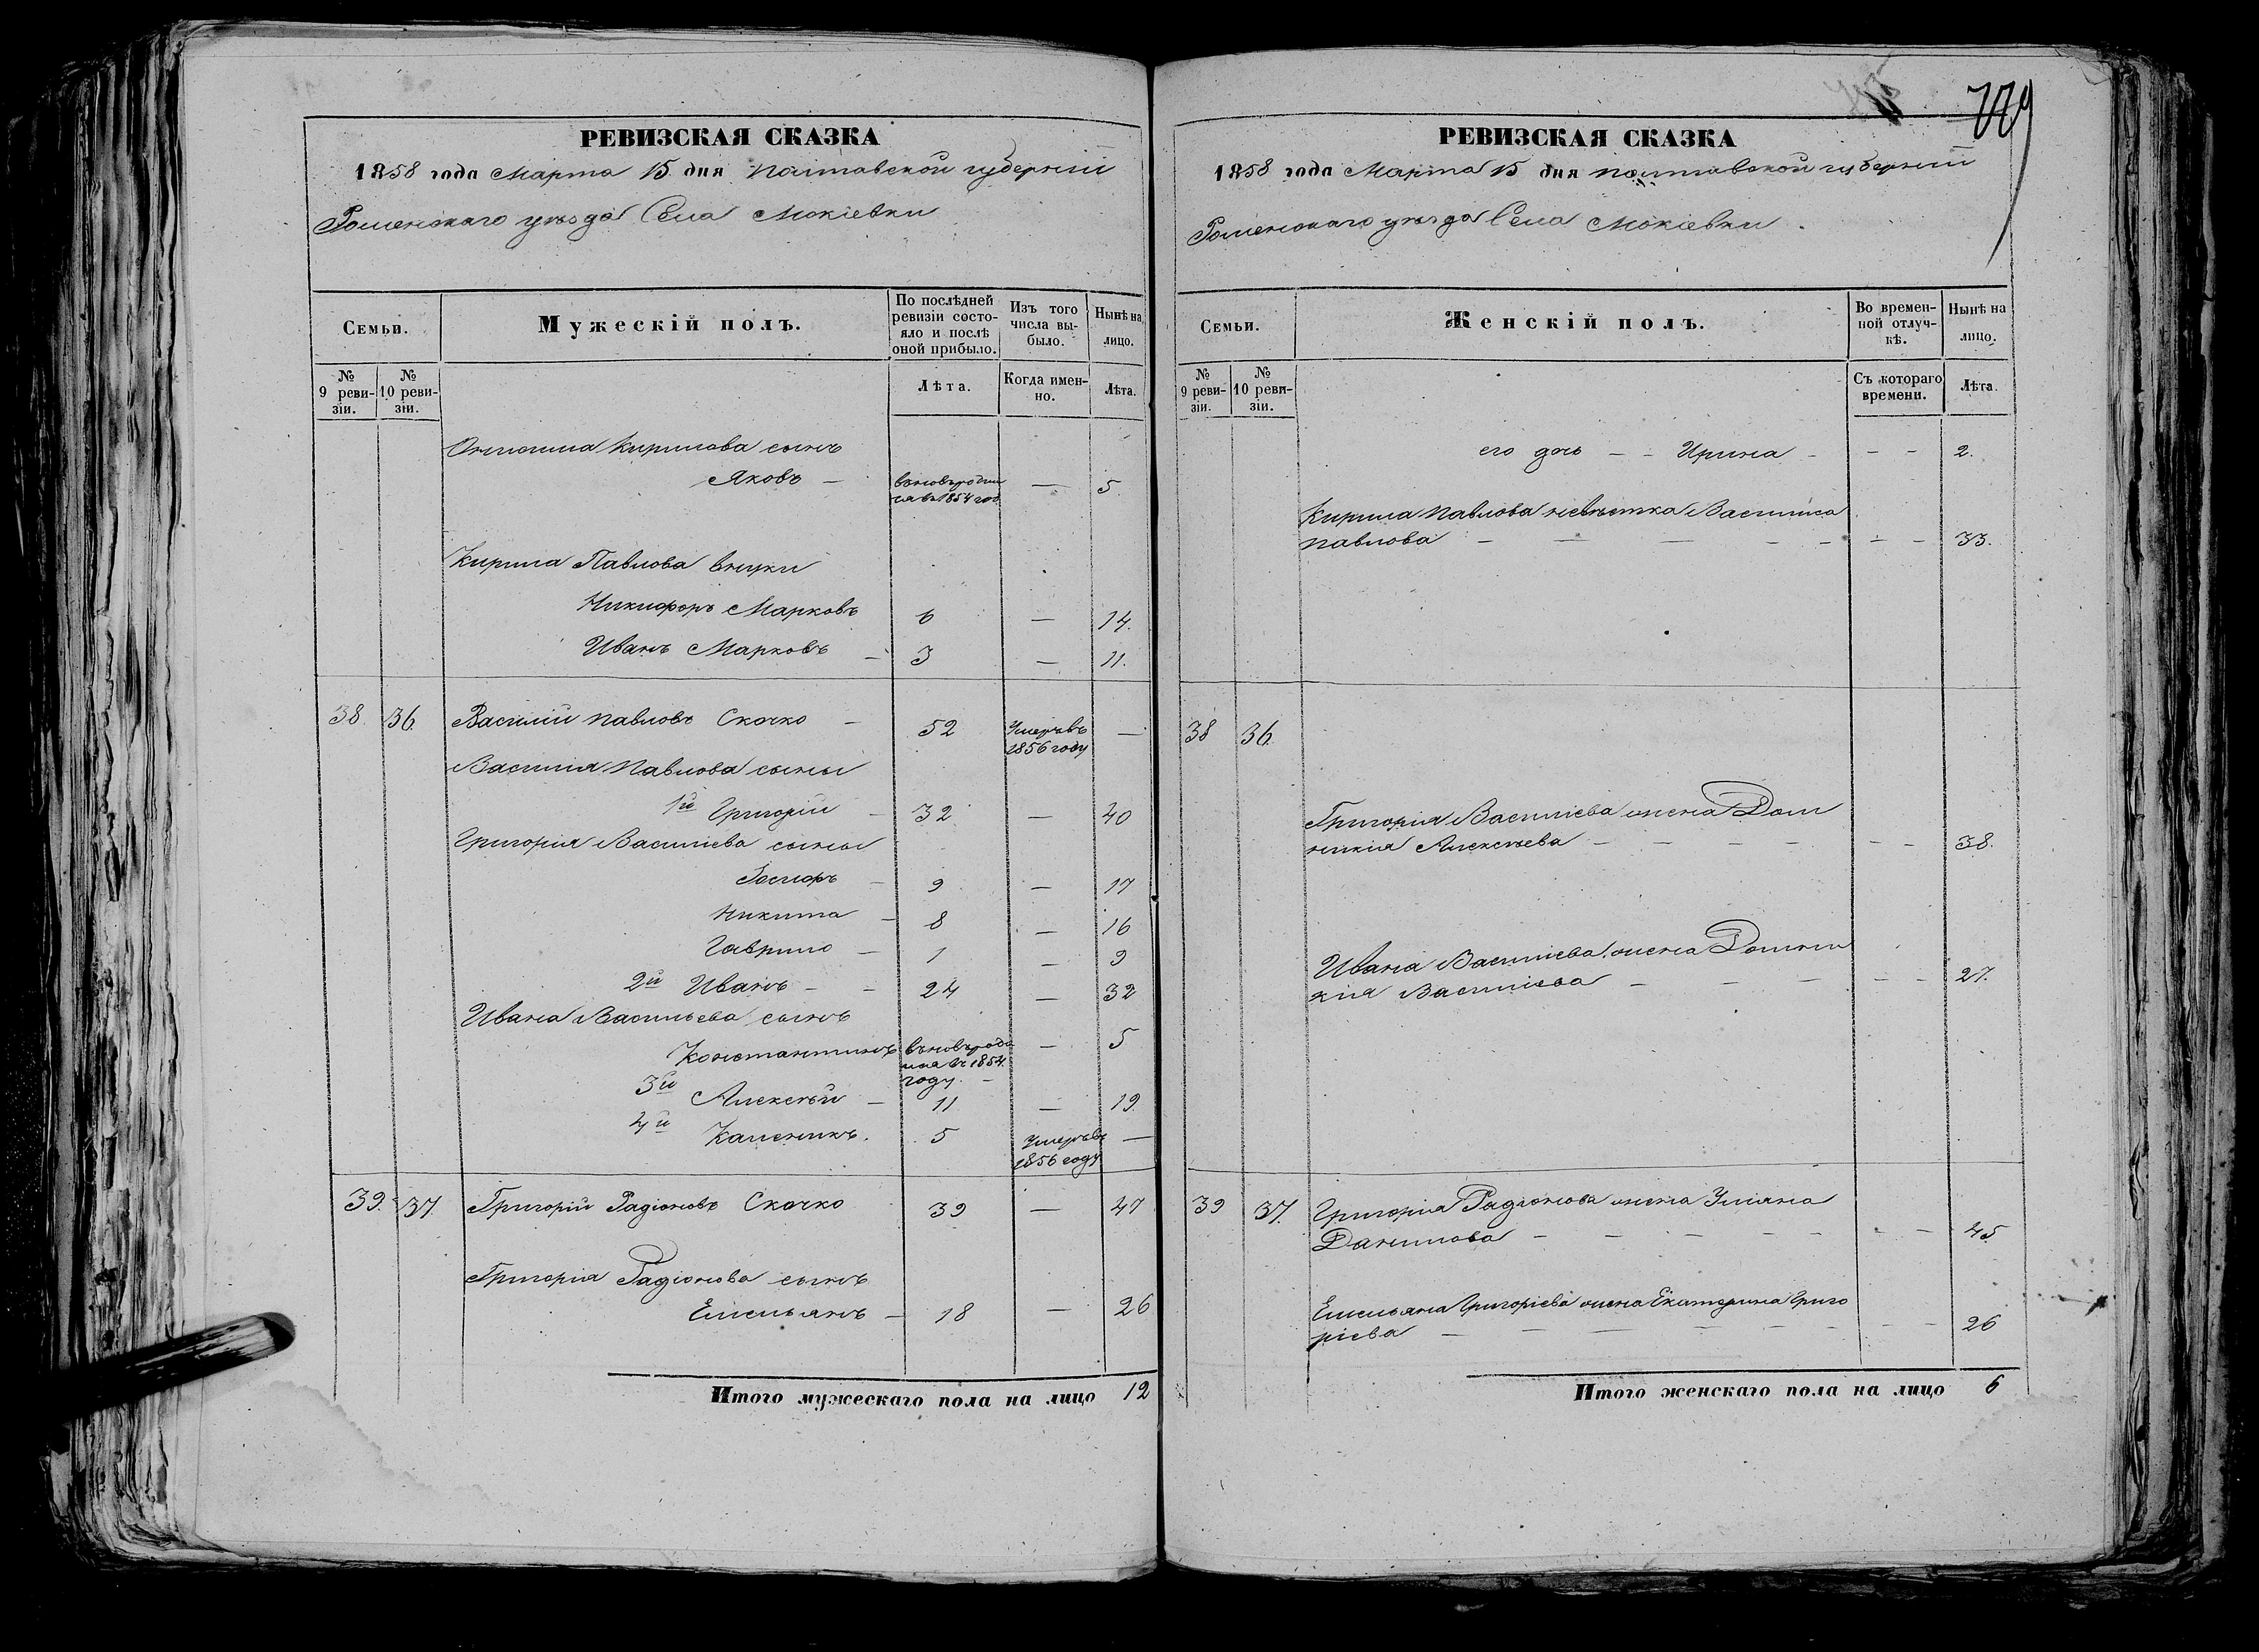 РЕВИЗСКАЯ СКАЗКА
1858 года Марта 15 дня Полтавской губерніи
Роменскаго уѣзда Села Мокіевки
Семьи.
Мужескій полъ.
По послѣдней ревизіи состо-
яло и послѣ
оной прибыло.
Изъ того
числа вы-
было.
Нынѣ на
лицо.
№
9 реви-
зіи.
№
10 реви-
зіи.
Лѣта.
Когда имен-
но.
Лѣта.
Кирилова сынъ
Яковъ — 1854 — 5
Кирила Павлова внуки
Никифоръ Марковъ 6 — 14.
Иванъ Марковъ — 3 — 11.
38. 36. Василий Павловъ Скочко — 52 Умеръ въ —
1856 году
Василия Павлова сыны
1й Григорій — 32 — 40
Григорія Василіева сыны
9 — 17
Никита — 8 — 16
Гаврило — 1 — 9
2й Иванъ — — 24 — 32
Ивана Васильева сынъ
Константинъ вновь роди — 5
лся въ 1854
году —
3й Алексѣй — 11 — 19.
4й Каленикъ. 5 Умеръ въ —
1856 году
39. 37. Григорій Радіоновъ Скочко 39 — 47
Григорія Радіонова сынъ
Емельянъ — 18 — 26
Итого мужескаго пола на лицо 12
РЕВИЗСКАЯ СКАЗКА
1858 года Марта 15 дня Полтавской губерніи
Роменскаго уѣзда Села Мокіевки.
Семьи.
Женскій полъ.
Во времен-
ной отлуч-
кѣ.
Нынѣ на
лицо.
№
9 реви-
зіи.
№
10 реви-
зіи.
Съ котораго
времени.
Лѣта.
его дочь — — Ирина — — — 2.
Кирила Павлова невѣстка Василиса
Павлова — — — — — — — 33.
38 36.
Григорія Василіева жена Дом
никія Алексѣева — — — — — — 38.
Ивана Василіева жена Домни
кия Василіева — — — — — 27.
39 37. Григорія Радіонова жена Уляна
Данилова — — — — — — — 45
Емельяна Григоріева жена Екатерина Григо
ріева — — — — — — — — 26
Итого женскаго пола на лицо 6